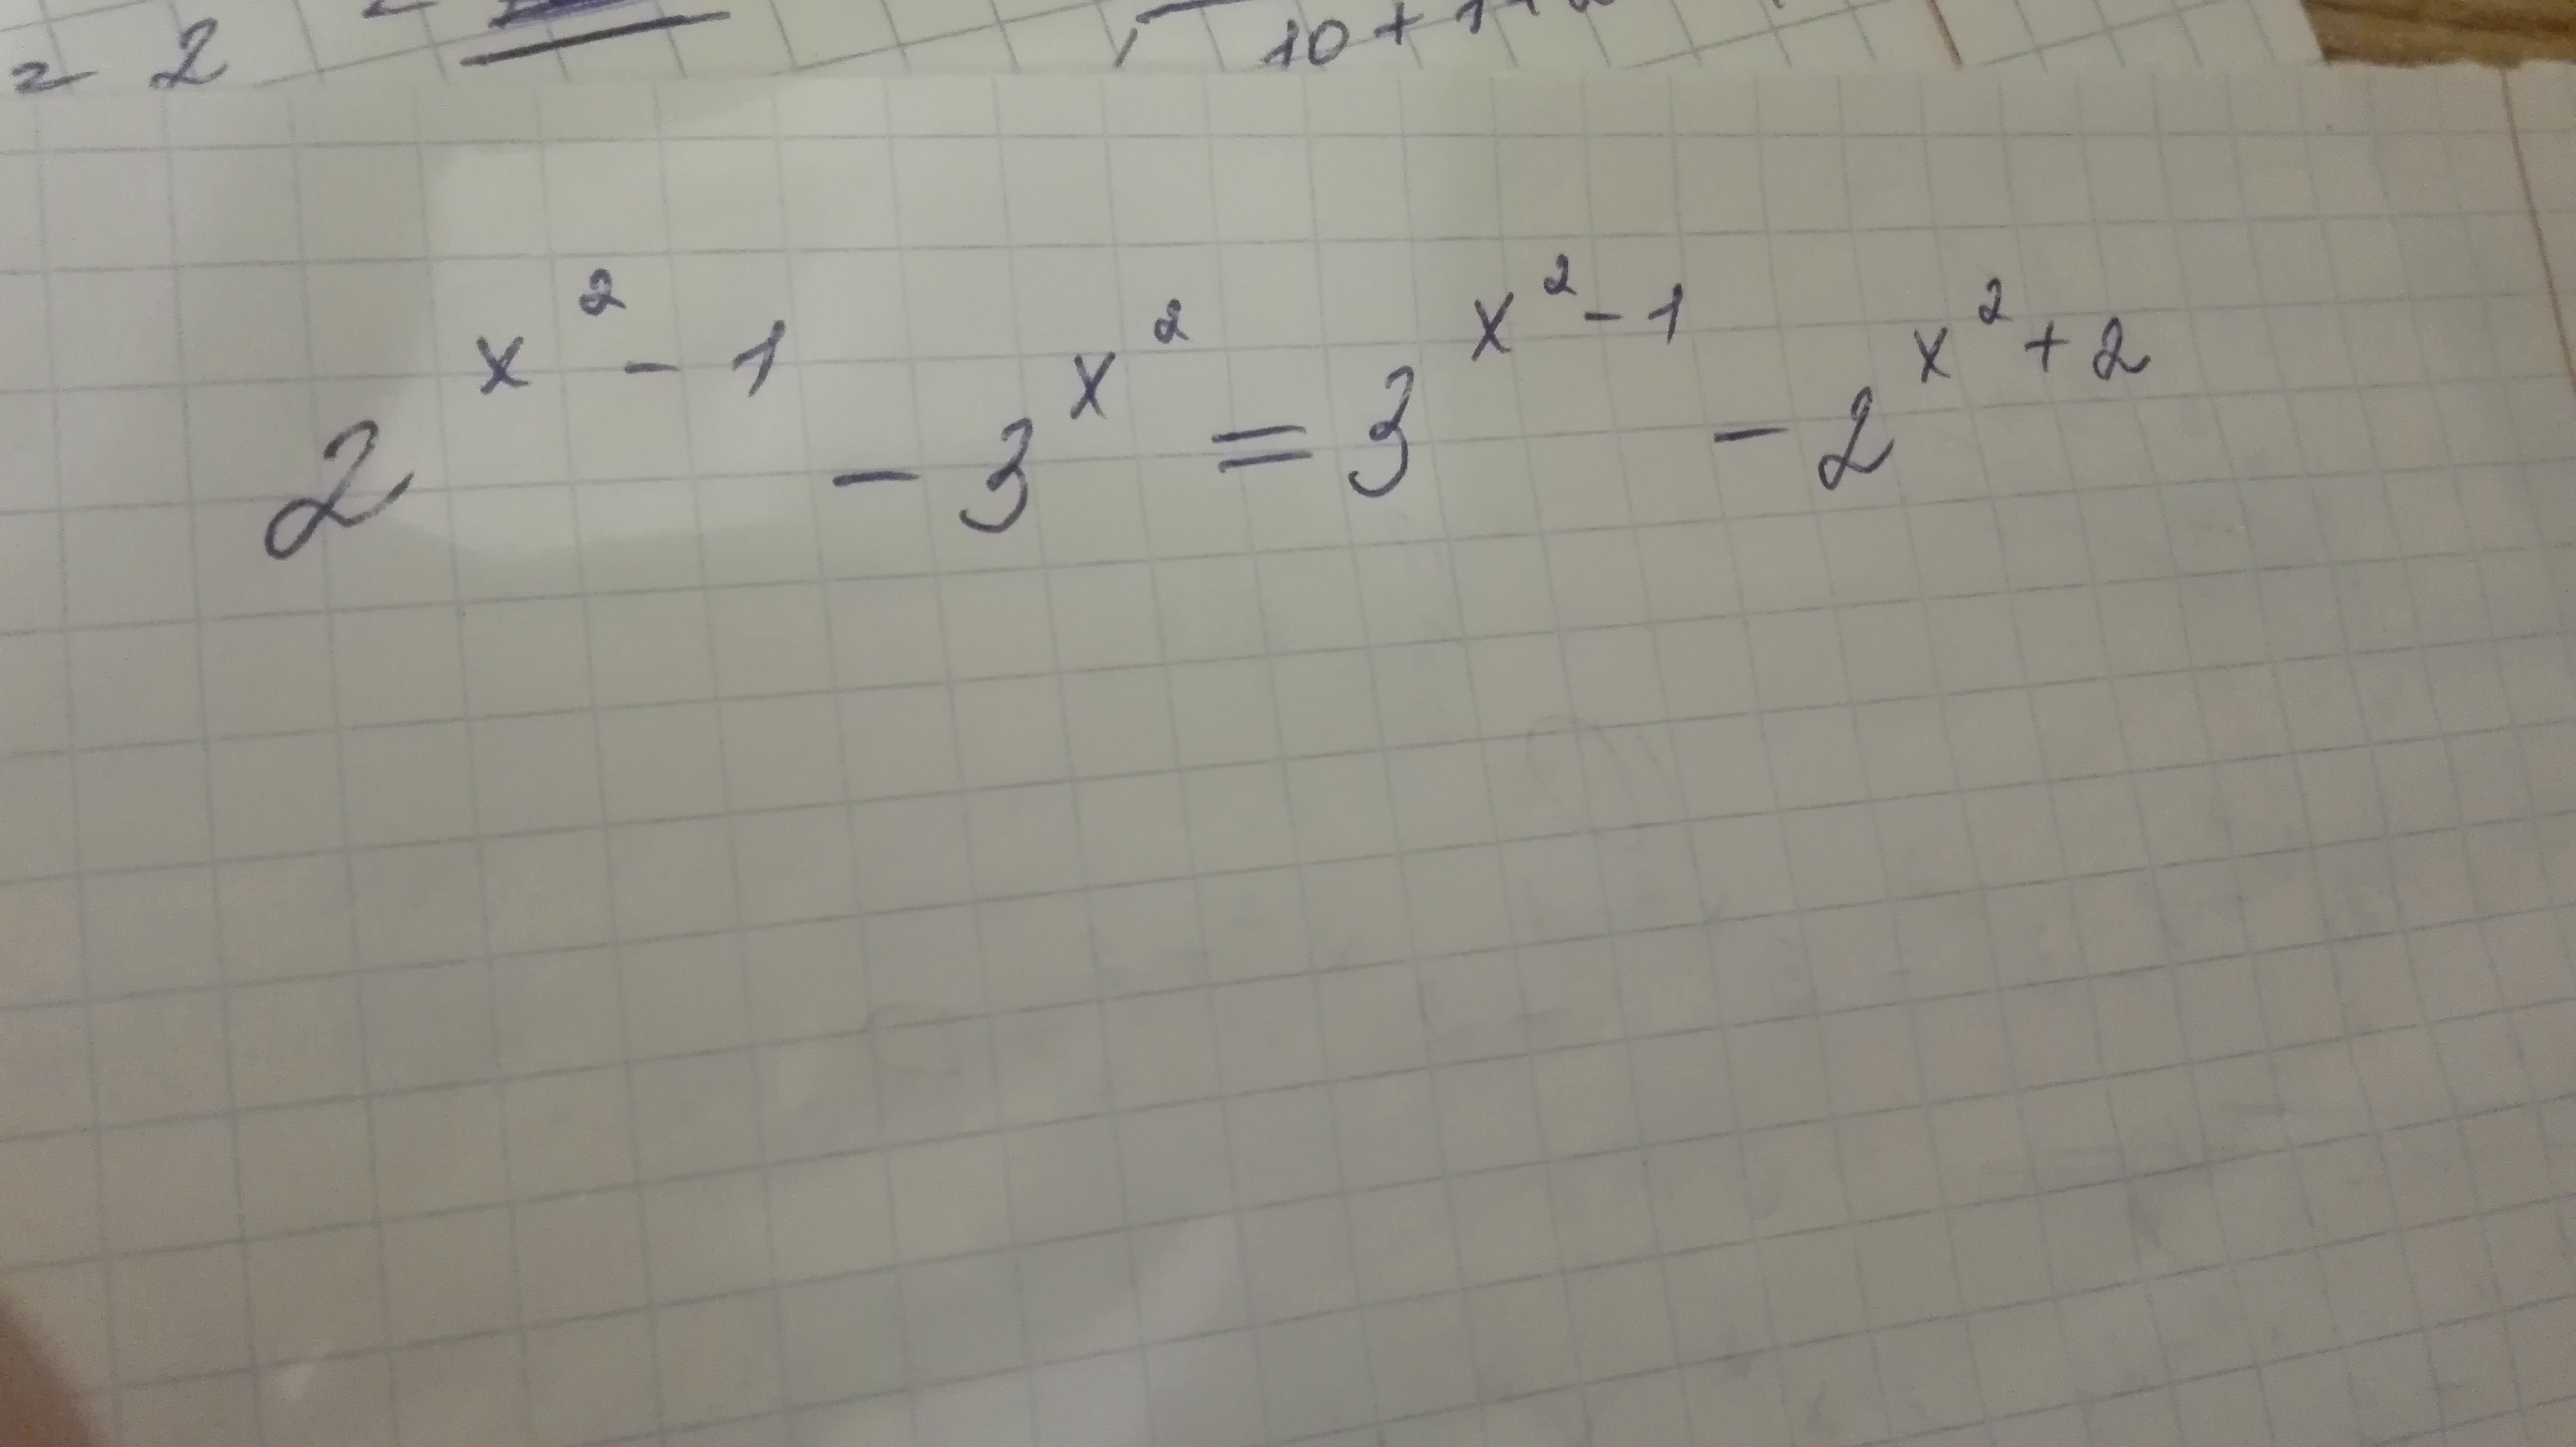 = 2
10 + 1
2^{x^2 - 1} - 3^{x^2} = 3^{x^2 - 1} - 2^{x^2 + 2}